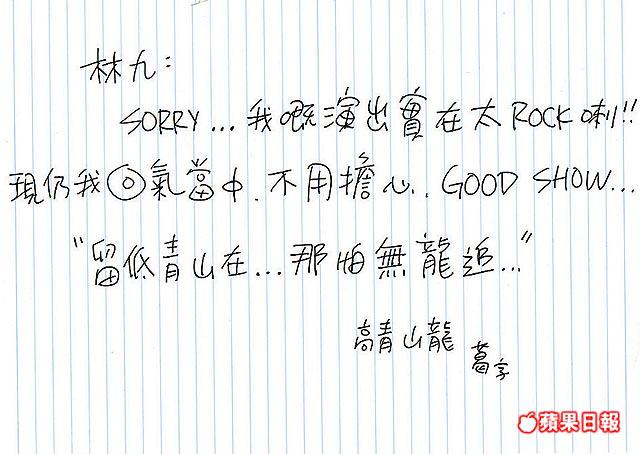 林九：
SORRY... 我嘅演出實在太ROCK喇!!
現仍我◎氣當中. 不用擔心.. GOOD SHOW...
"留低青山在... 那怕無龍追..."
高青山龍 葛字
蘋果日報